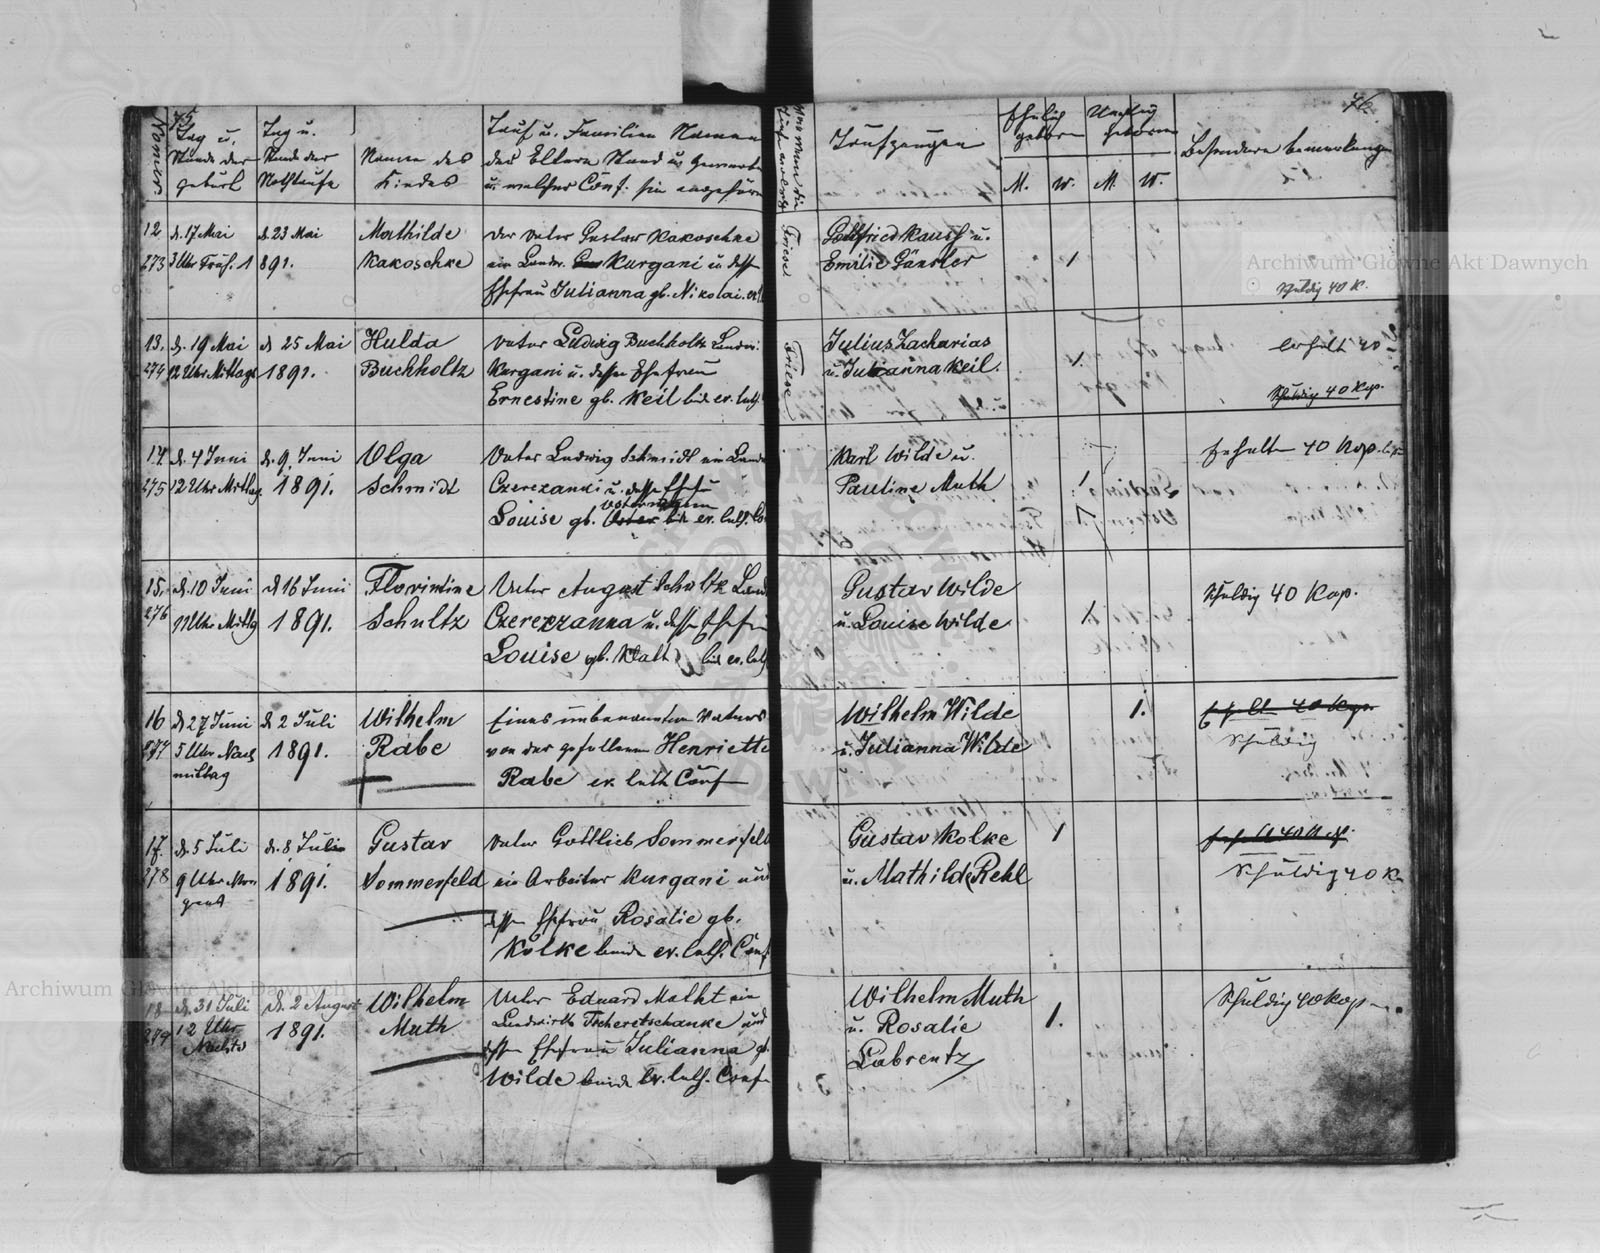 75
Nomer
Tag u.
Stunde der
geburt
Tag u.
Stunde der
Nothtaufe
Namen des
Kindes
Tauf u. Familien Namen
der Eltern Stand u. Gewerbe
u. welcher Conf. sie angehören
12
273
d. 17 Mai
3 Uhr Früh.
d. 23 Mai
1891.
Mathilde
Kakoschke
der Vater Gustav Kakoschke
ein Landw. Kurgani u. dessen
Ehefrau Julianna gb. Nikolai. ev.
13.
274
d. 19 Mai
12 Uhr Mittags
d 25 Mai
1891.
Hulda
Buchholtz
Vater Ludwig Buchholtz Landw.
Kurgani u. dessen Ehefrau
Ernestine gb. Keil bid ev. luth.
14.
275
d. 4 Juni
12 Uhr Mittag
d. 9. Juni
1891.
Olga
Schmidt
Vater Ludwig Schmidt ein Landw
Czerezanki u. dessen Ehefr
Louise gb. bid ev. luth. Co
15.
276
d. 10 Juni
Uhr Mittg
d 16 Juni
1891.
Florintine
Schultz
Vater August Schultz Landw
Czerezzanna u. dessen Ehefr
Louise gb. Klatt bid ev. luth
16
277
d 27 Juni
5 Uhr Nach
mittag
d 2 Juli
1891.
Wilhelm
Rabe
Eines unbenannten Vaters
von der gefallenen Henriette
Rabe ev. luth Conf
17.
278
d. 5 Juli
9 Uhr Mor
gens
d. 8 Juli
1891.
Gustav
Sommerfeld
Vater Gottlieb Sommerfeld
ein Arbeiter Kurgani und
dessen Ehefrau Rosalie gb.
Kolke beide ev. luth. Conf
18
279
d. 31 Juli
12 Uhr
Nachts
d. 2 August
1891.
Wilhelm
Muth
Vater Eduard
Landwirth Tscheretschanke und
dessen Ehefrau Julianna gb.
Wilde beide ev. luth. Conf
76.
Taufzeugen
Ehelig
geboren
M. W.
Unehlig
geboren
M. W.
Besondere bemerkungen
Friese
Gottfried Rausch u.
Emilie Gänsler
1
Schuldig 40 K.
Friese
Julius Zacharias
u. Julianna Keil.
1.
erhalt 40
Schuldig 40 Kop.
Karl Wilde u.
Pauline Muth
1
Erhalten 40 Kop.
Gustav Wilde
u. Louise Wilde
1.
Schuldig 40 Kop.
Wilhelm Wilde
u. Julianna Wilde
1.
40 Kop.
Schuldig
Gustav Kolke
u. Mathilde Rehl
1
Schuldig 40 K
Wilhelm Muth
u. Rosalie
Labrentz
1.
Schuldig 40 Kop
Archiwum Główne Akt Dawnych
Archiwum Główne Akt Dawnych